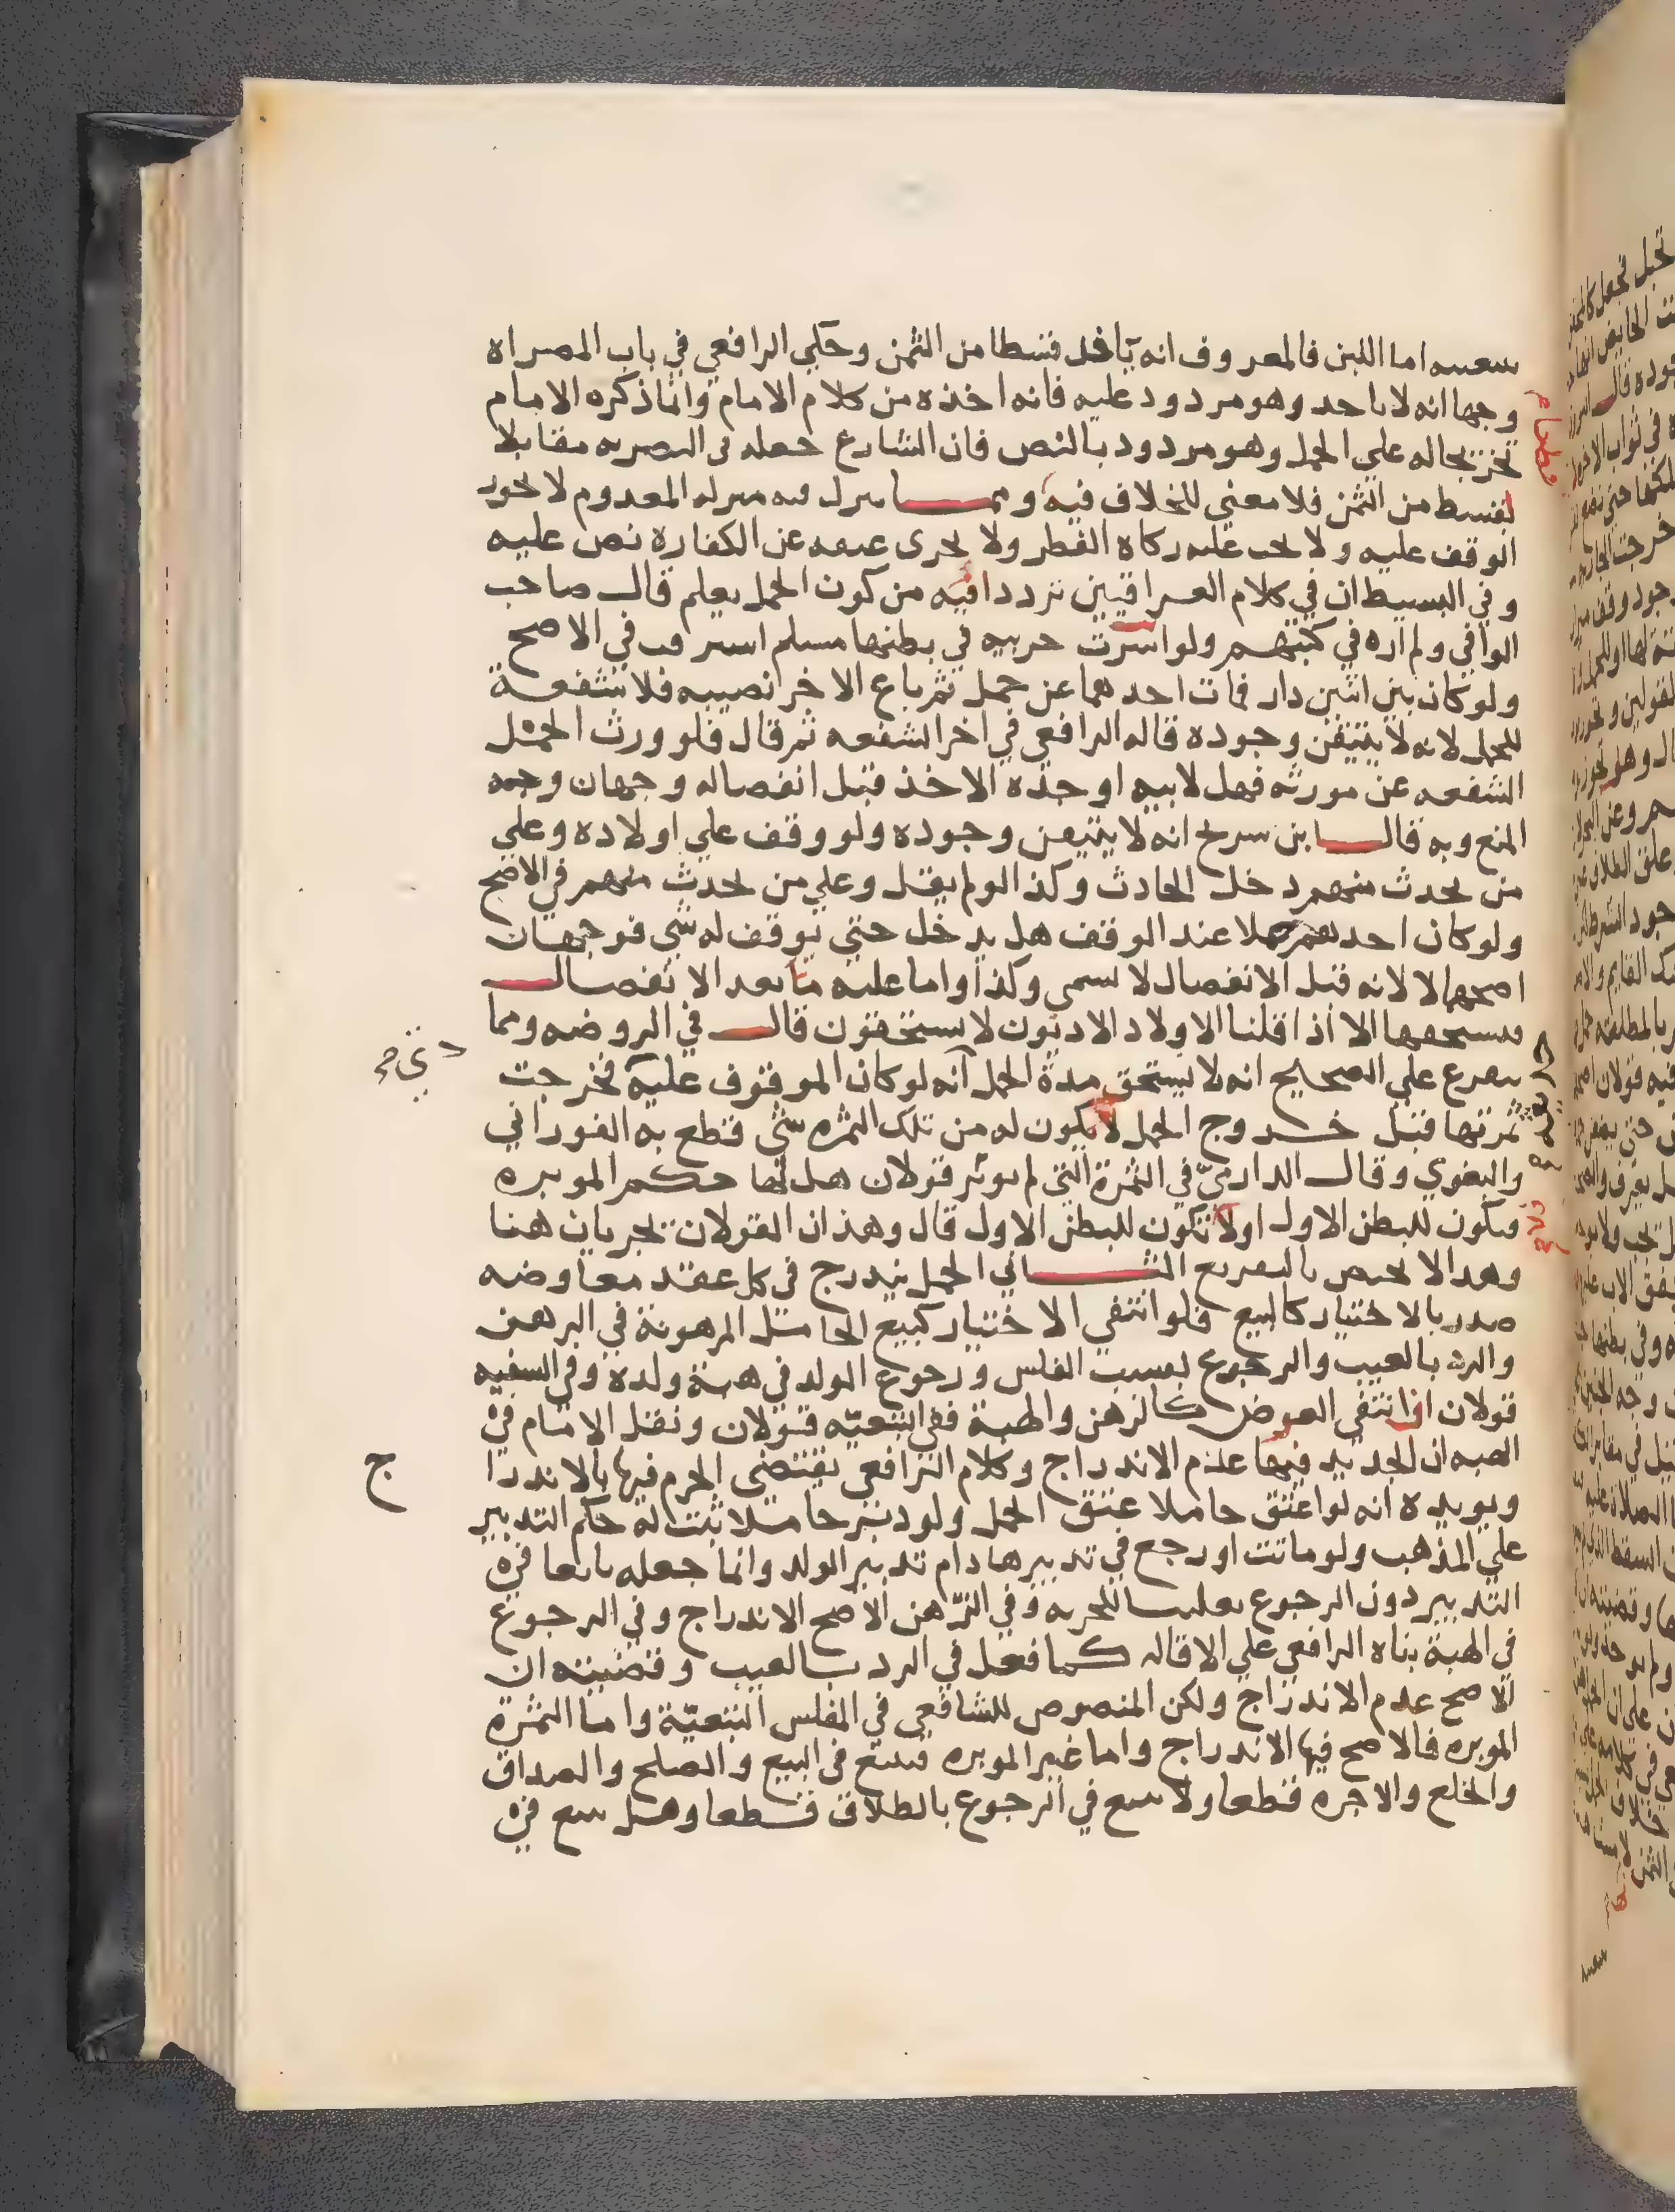 بنفسه اما اللبن فالمعروف انه ياخذ قسطا من الثمن وحكي الرافعي في باب المصراه
وجها انه لا ياخذ وهو مردود عليه فانه اخذه من كلام الامام وانما ذكره الامام
تخريجا له علي الحمل وهو مردود بالنص فان الشارع جعله في التصريه مقابلا
لقسط من الثمن فلا معني للخلاف فيه ومما نزل فيه منزله المعدوم لا يجوز
الوقف عليه ولا يجب عليه زكاه الفطر ولا يجزى عتقه عن الكفارة نص عليه
وفي البسيط ان في كلام العراقيين ترددا فيه من كون الحمل يعلم قال صاحب
الوافي ولم اره في كتبهم ولو استرقت حربيه في بطنها مسلم استرقت في الاصح
ولو كان بين اثنين دار فمات احدهما عن حمل ثم باع الاخر نصيبه فلا شفعة
للحمل لانه لا يتيقن وجوده قاله الرافعي في اخر الشفعه ثم قال فلو ورث الحمل
الشفعه عن مورثه فهل لابيه او جده الاخذ قبل انفصاله وجهان وجه
المنع وبه قال ابن سريج انه لا يتيقن وجوده ولو وقف علي اولاده وعلي
من يحدث منهم دخل الحادث وكذا لو لم يقل وعلي من يحدث منهم في الاصح
ولو كان احدهم حملا عند الوقف هل يدخل حتي يوقف له شي فوجهان
اصحهما لا لانه قبل الانفصال لا يسمى ولدا واما عليه ما بعد الانفصال
فيستحقها الا اذا قلنا الاولاد الادنون لا يستحقون قال في الروضه ومما
يتفرع علي الصحيح انه لا يستحق مدة الحمل انه لو كان الموقوف عليه فخرجت
ثمرتها قبل خروج الحمل لا يكون له من تلك الثمره شي قطع به الفوراني
والبغوي وقال الدارمي في الثمرة التي لم توبر قولان هل لها حكم الموبره
فتكون للبطن الاول او لا تكون للبطن الاول قال وهذان القولان يجريان هنا
وهذا لا يختص بالتفريع الثاني الحمل يندرج في كل عقد معاوضه
صدر بالاختيار كالبيع فلو انتفي الاختيار كبيع الحامل المرهونة في الرهن
والرد بالعيب والرجوع بسبب الفلس ورجوع الولد في هبة ولده وفي السفيه
قولان اذا انتفي العوض كالرهن والهبة ففي التبعيه قولان ونقل الامام في
الهبه ان الجديد فيها عدم الاندراج وكلام الرافعي يقتضى الجزم فيها بالاندرا
ج
ويويده انه لو اعتق حاملا عتق الحمل ولو دبر حاملا ثبت له حكم التدبير
علي المذهب ولو ماتت او رجع في تدبيرها دام تدبير الولد وانما جعله تابعا في
التدبير دون الرجوع تغليبا للحريه وفي الرهن الاصح الاندراج وفي الرجوع
في الهبة بناه الرافعي علي الاقاله كما فعل في الرد بالعيب وقضيته ان
الاصح عدم الاندراج ولكن المنصوص للشافعي في المفلس التبعية واما الثمرة
الموبره فالاصح فيها الاندراج واما غير الموبره فتتبع في البيع والصلح والصداق
والخلع والاجره قطعا ولا تتبع في الرجوع بالطلاق قطعا وهل تتبع في